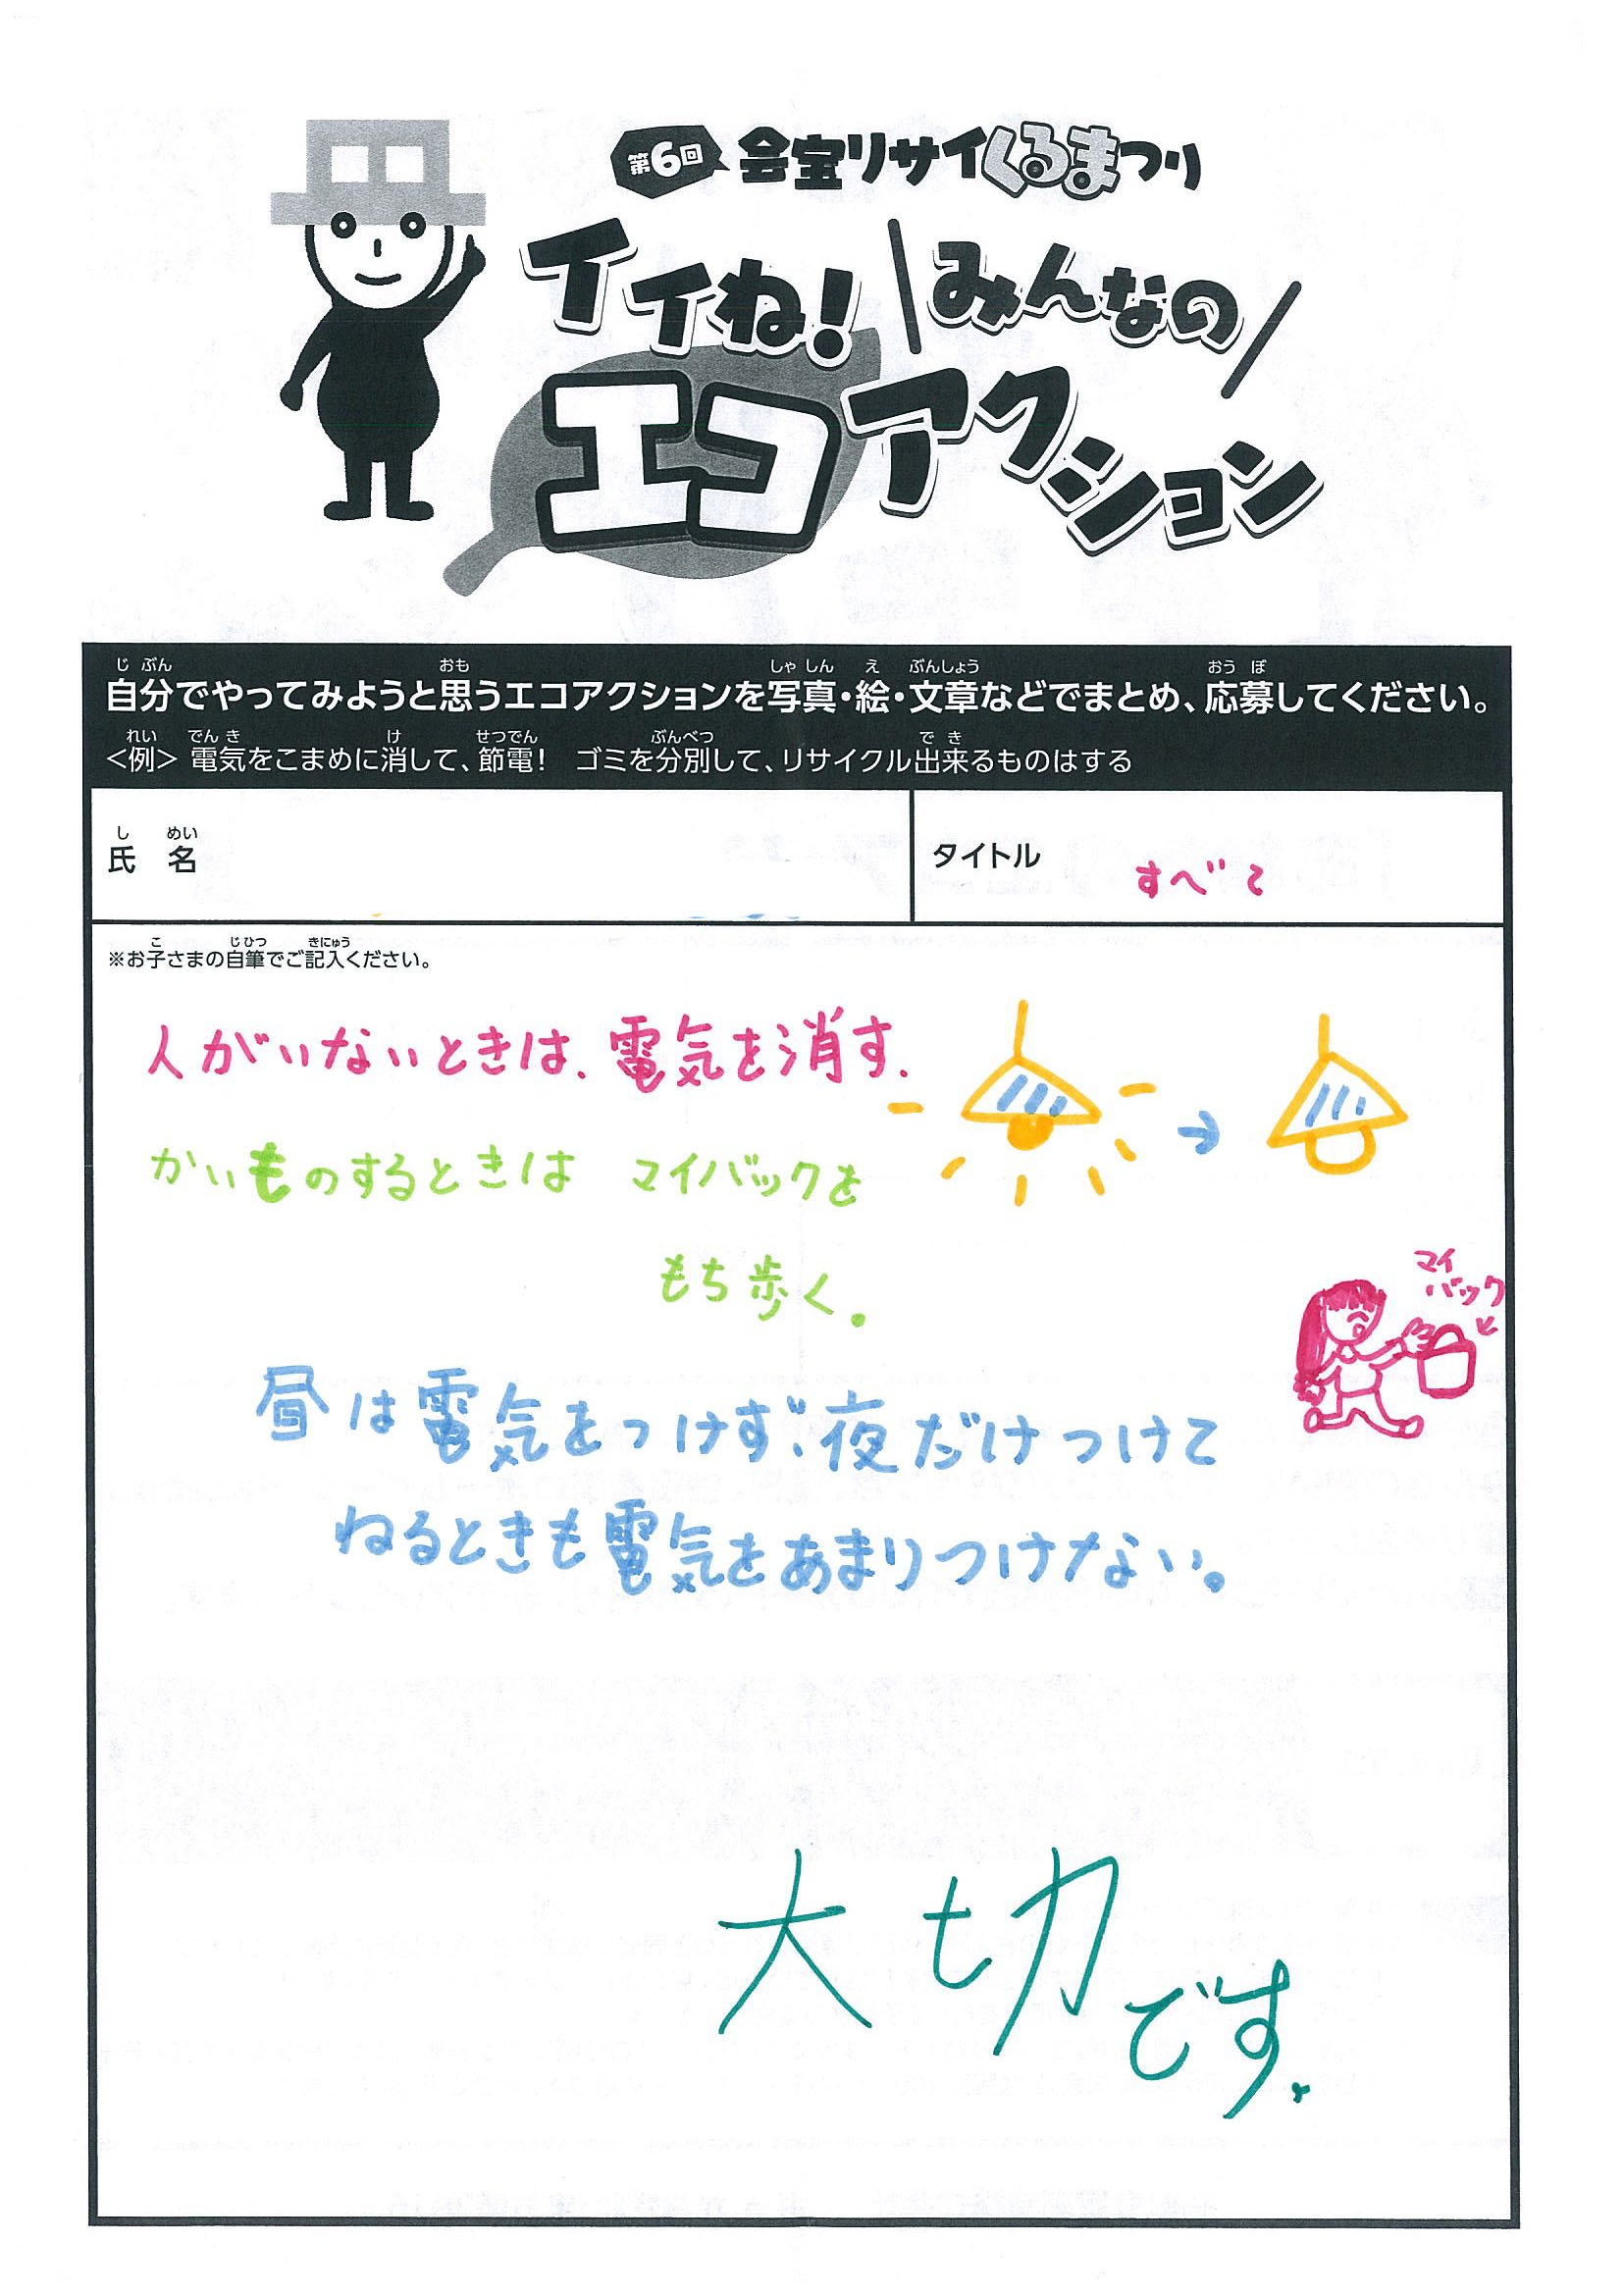 第6回 会宝リサイくるまつり
イイね! みんなの
エコアクション
じ ぶん おも しゃ しん え ぶんしょう おう ぼ
自分でやってみようと思うエコアクションを写真・絵・文章などでまとめ、応募してください。
れい でん き け せつでん ぶんべつ で き
<例> 電気をこまめに消して、節電! ゴミを分別して、リサイクル出来るものはする
し めい
氏 名
タイトル すべて
こ じひつ きにゅう
※お子さまの自筆でご記入ください。
人がいないときは、電気を消す.
かいものするときは マイバックを
もち歩く。
マイ
バック
昼は電気をつけず、夜だけつけて
ねるときも電気をあまりつけない。
大切です.